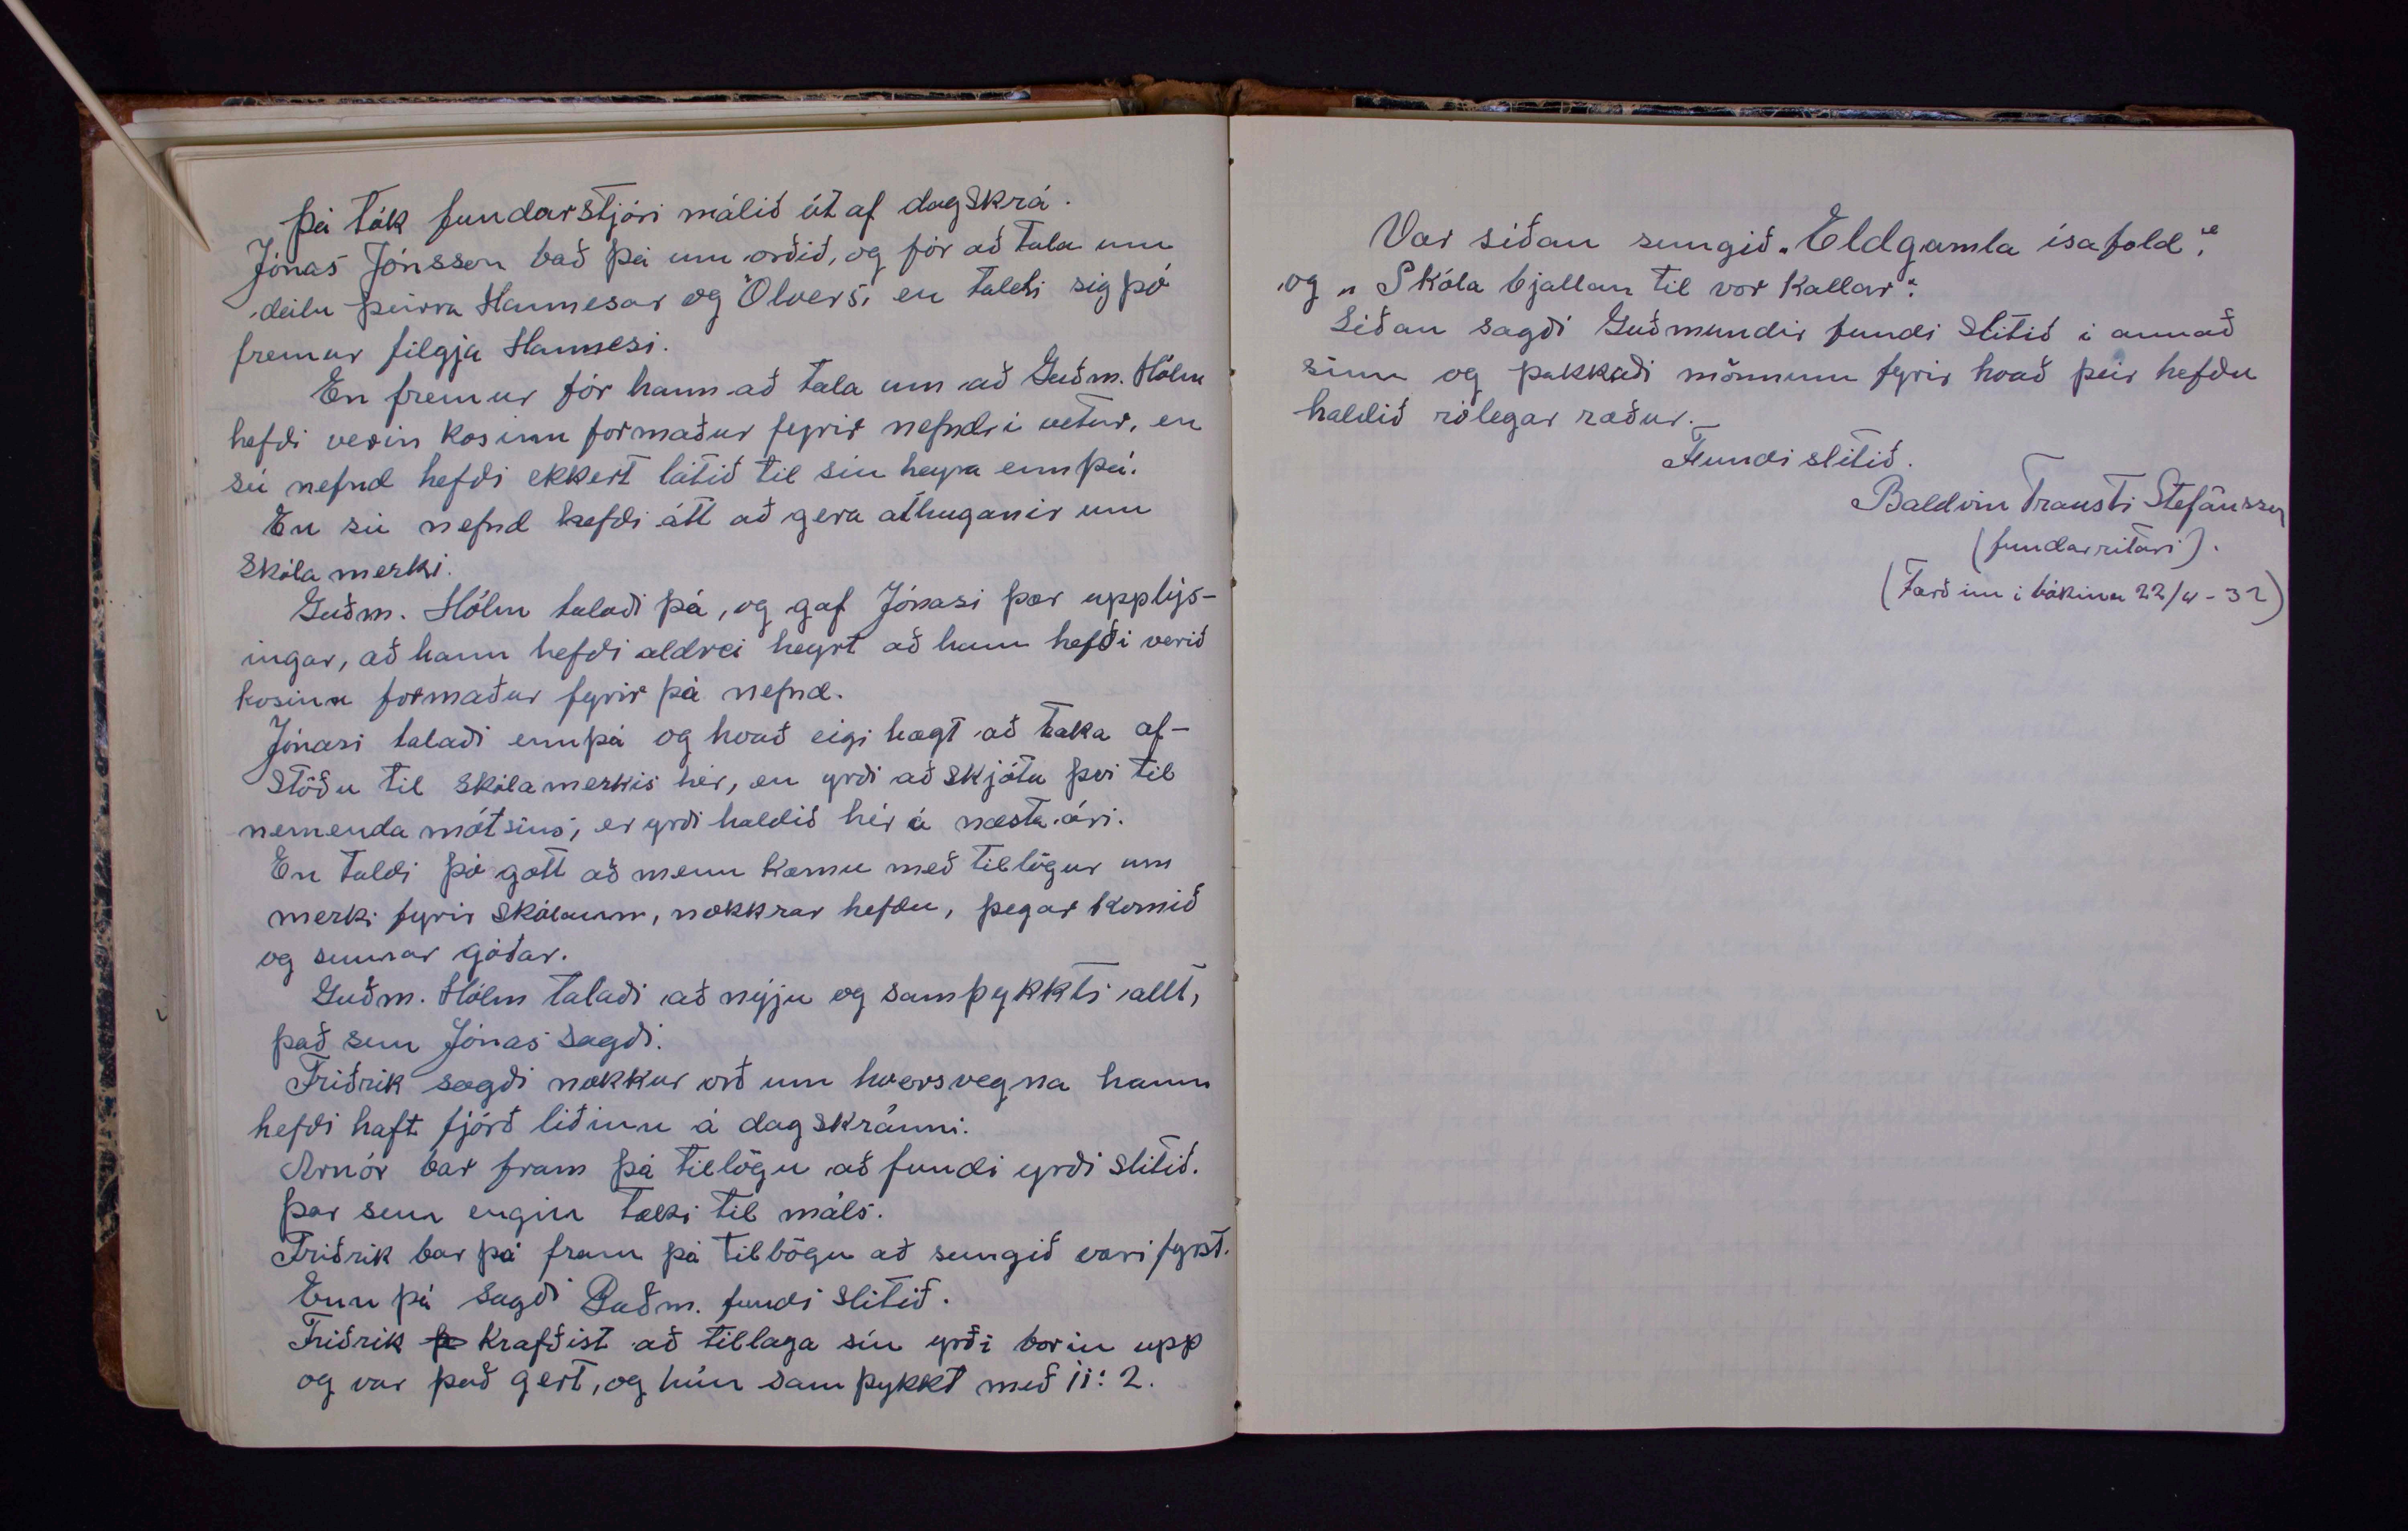 Þá tók fundarstjóri málið út af dagskrá.
Jónas Jónsson bað þá um orðið, og fór að tala um
deilu þeirra Hannesar og Ölvers, en taldi sig þó
fremur filgja Hannesi.
En fremur fór hann að tala um að Guðm. Hólm
hefði verin kosinn formaður fyrir nefnd í vetur, en
sú nefnd hefði ekkert látið til sín heyra ennþá.
En sú nefnd hefði átt að gera athuganir um
Skólamerki.
Guðm. Hólm talaði þá, og gaf Jónasi þær upplýs-
ingar, að hann hefði aldrei heyrt að hann hefði verið
kosinn formaður fyrir þá nefnd.
Jónasi talaði ennþá og hvað eigi hægt að taka af-
stöðu til skólamerkis hér, en yrði að skjóta því til
nemendamótsins, er yrði haldið hér á næsta ári.
En taldi þó gott að menn kæmu með tillögur um
merki fyrir skólanum, nokkrar hefðu, þegar komið
og sumar góðar.
Guðm. Hólm talaði að nýju og samþykkti allt,
það sem Jónas sagði.
Friðrik sagði nokkur orð um hversvegna hann
hefði haft fjórð liðinn á dagskránni.
Arnór bar fram þá tillögu að fundi yrði slitið.
þar sem engin tæki til máls.
Friðrik bar þá fram þá tillögu að sungið væri fyrst.
Enn þá sagði Guðm. fundi slitið.
Friðrik krafðist að tillaga sín yrði borin upp
og var það gert, og hún samþykkt með 11:2.
Var síðan sungið „Eldgamla ísafold“.
og „Skóla bjallan til vor kallar“.
Síðan sagði Guðmundir fundi slitið í annað
sinn og þakkaði mönnum fyrir hvað þeir hefðu
haldið rólegar ræður.
Fundi slitið.
Baldvin Trausti Stefánsson
(fundarritari).
(Fært inn í bókina 22/4-32)